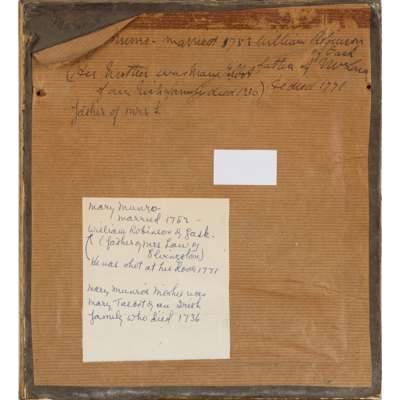 Munro - married 1782 William Robinson
of Gask
(Her Mother was Mary Talbot father of Mrs Law
of an Irish family died 1736) he died 1771
father of Mrs L
Mary Munro-
married 1782 -
William Robinson of Gask.
(father of Mrs Law of
Elvingston)
He was shot at his door 1771
Mary Munro's Mother was
Mary Talbot of an Irish
family who died 1736